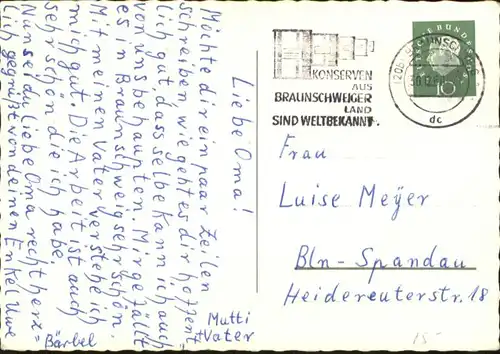 Liebe Oma!
Möchte dir ein paar Zeilen
schreiben, wie geht es dir hoffent
lich gut dasselbe kann ich auch
von uns behaupten. Mir gefällt
es in Braunschweig sehr schön.
Mit meinen Vater verstehe ich
mich gut. Die Arbeit ist auch
sehr schön die ich habe.
Nun sei du liebe Oma recht herz=
lich gegrüßt von deinen Enkel Uwe
Bärbel
Mutti
Vater
KONSERVEN
AUS
BRAUNSCHWEIGER
LAND
SIND WELTBEKANNT
(20b)
dc
10
Frau
Luise Meyer
Bln-Spandau
Heidereuterstr. 18